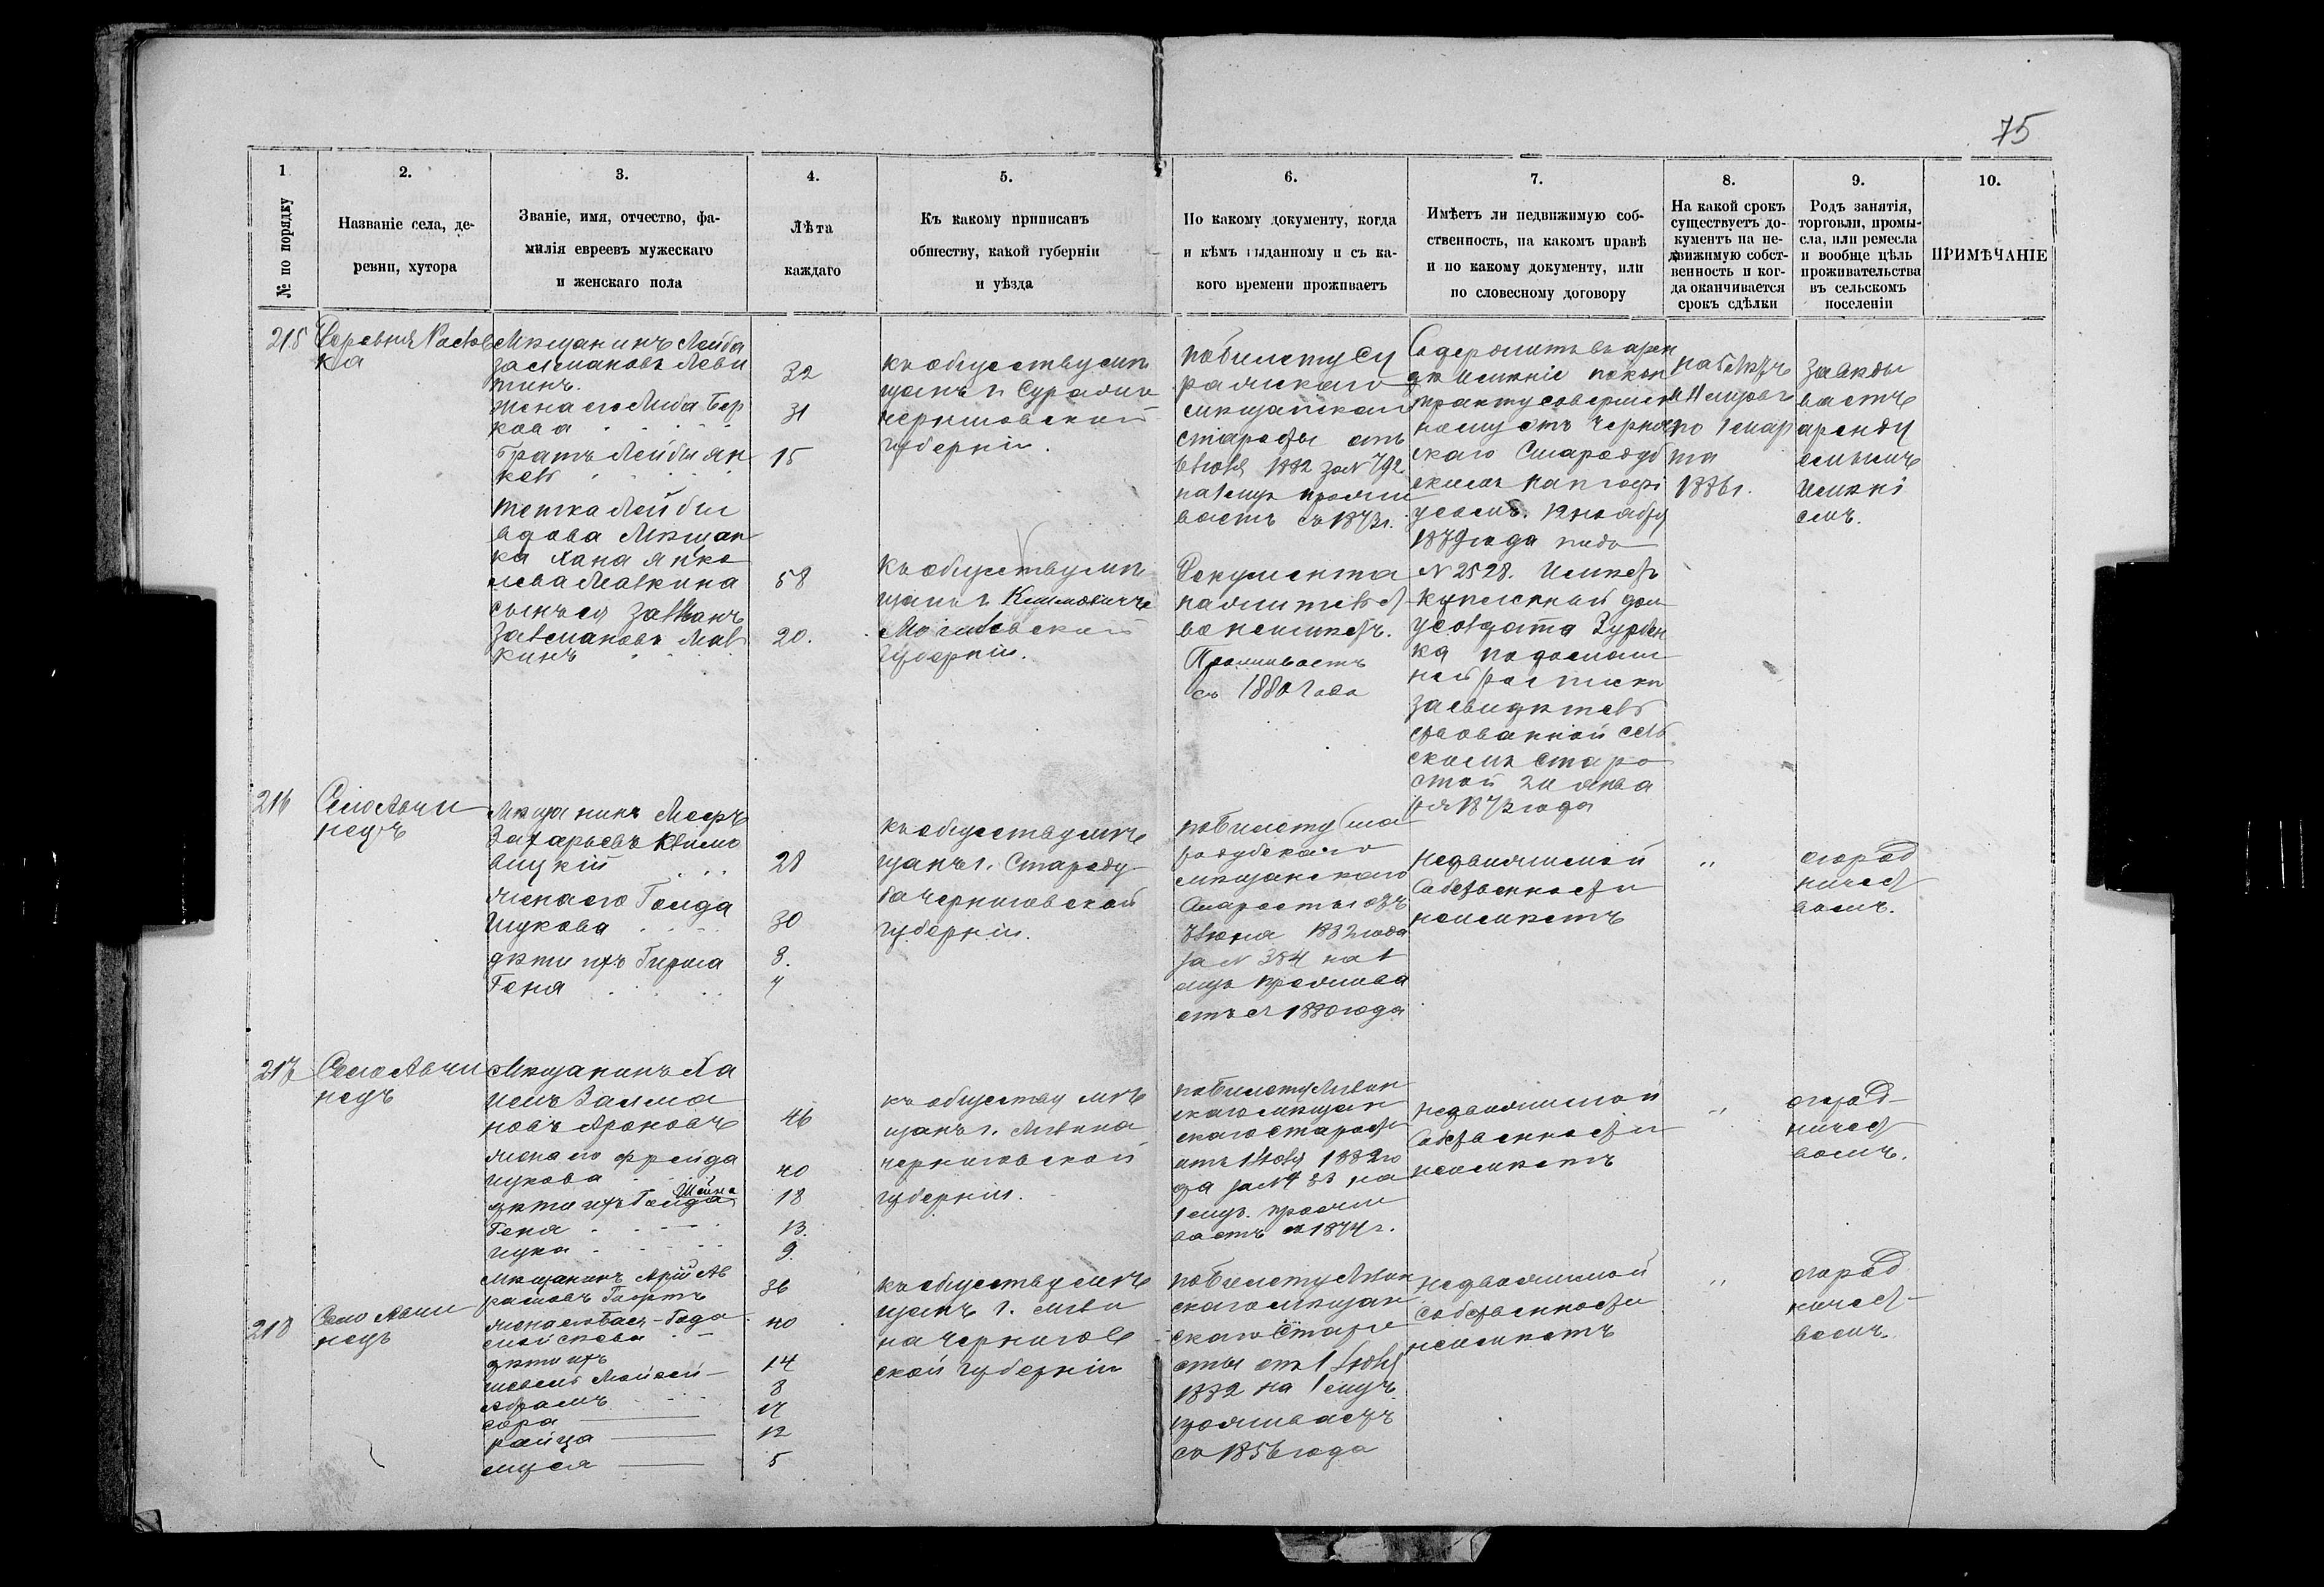 75
1
№ по порядку
2.
Названіе села, де-
ревни, хутора
3.
Званіе, имя, отчество, фа-
милія евреевъ мужескаго
и женскаго пола
4.
Лѣта
каждаго
5.
Къ какому приписанъ
обществу, какой губерніи
и уѣзда
6.
По какому документу, когда
и кѣмъ выданному и съ ка-
кого времени проживаетъ
7.
Имѣетъ ли недвижимую соб-
ственность, на какомъ правѣ
и по какому документу, или
по словесному договору
8.
На какой срокъ
существуетъ до-
кументъ на не-
движимую собст-
венность и ког-
да оканчивается
срокъ сдѣлки
9.
Родъ занятія,
торговли, промы-
сла, или ремесла
и вообще цѣль
проживательства
въ сельскомъ
поселеніи
10.
ПРИМѢЧАНІЕ
215
Деревня
ка
Мѣщанинъ Лейба
Залмановъ Леви
тинъ.
32
жена его Либа Бер
кова
31
Братъ Лейбы Ян
кель
15
тетка Лейбы
вдова Мѣщан
ка Хана Янке
лева Малкина
58
сынъ ея Залманъ
Залмановъ Мал
кинъ
20.
къ обществу мѣ
щанъ г. Суража
черниговской
губерніи.
къ обществу мѣ
щанъ г. Климовичъ
Могилевской
губерніи.
по билету Су
ражскаго
мѣщанскаго
старосты отъ
Іюля 1882 за № 792
на 1 мцъ прожи
ваетъ съ 1873 г.
Документа
на жительст
во неимѣетъ.
Проживаетъ
съ 1880 года
Содержитъ въ арен
дѣ имѣніе по кон
тракту совершен
ному отъ
скаго Стародуб
скимъ нотарі
усомъ. 12 ноября
1879 года подъ
№ 2528. Имѣетъ
купленный дом
у солдата
ка по домаш
ней роспискѣ
засвидѣтель
ствованной сель
скимъ старо
стой 20 янва
ря 1872 года
на 6 лѣтъ
по 1 мар
та
1886 г.
завѣды
ваетъ
аренду
емымъ
имѣні
емъ.
216
Село Авчи
нецъ
Мѣщанинъ Мееръ
Захарьевъ Климо
вицкій
28
жена его Гоида
Ицкова
30
дѣти ихъ Гирша
8.
Геня
4
къ обществу мѣ
щанъ г. Староду
ба черниговской
губерніи.
по билету Ста
родубскаго
мѣщанскаго
Старосты отъ
Іюня 1882 года
за № 384 на 1
мцъ прожива
етъ съ 1880 года
недвижимой
Собственности
неимѣетъ
"
огород
ничест
вомъ.
217
Село Авчи
нецъ
Мѣщанинъ Ха
имъ Залма
новъ Ароновъ
46
жена его Фрейда
Ицкова
40
дѣти ихъ Гоида
Шейна
18
Геня
13.
Ицка
9.
къ обществу мѣ
щанъ г. Мглина
черниговской
губерніи.
по билету Мглин
скаго мѣщан
скаго старосты
отъ 1 Іюля 1882 го
да за № 433 на
1 мцъ. прожи
ваетъ съ 1874 г.
недвижимой
Собственности
неимѣетъ
"
огород
ничест
вомъ.
218
Село Авчи
нецъ
Мѣщанинъ Арій Аб
рамовъ
36
жена его Бася-Года
40
дѣти ихъ
Мойсей
14
Абрамъ
8
Сора
17
райца
12
муся
5
къ обществу мѣ
щанъ г. Мгли
на Чернигов
ской губерніи
по билету Мглин
скаго мѣщан
скаго старо
сты отъ 1 Іюля
1882 на 1 мцъ
проживаетъ
съ 1856 года
недвижимой
собственности
неимѣетъ
"
огород
ничест
вомъ.